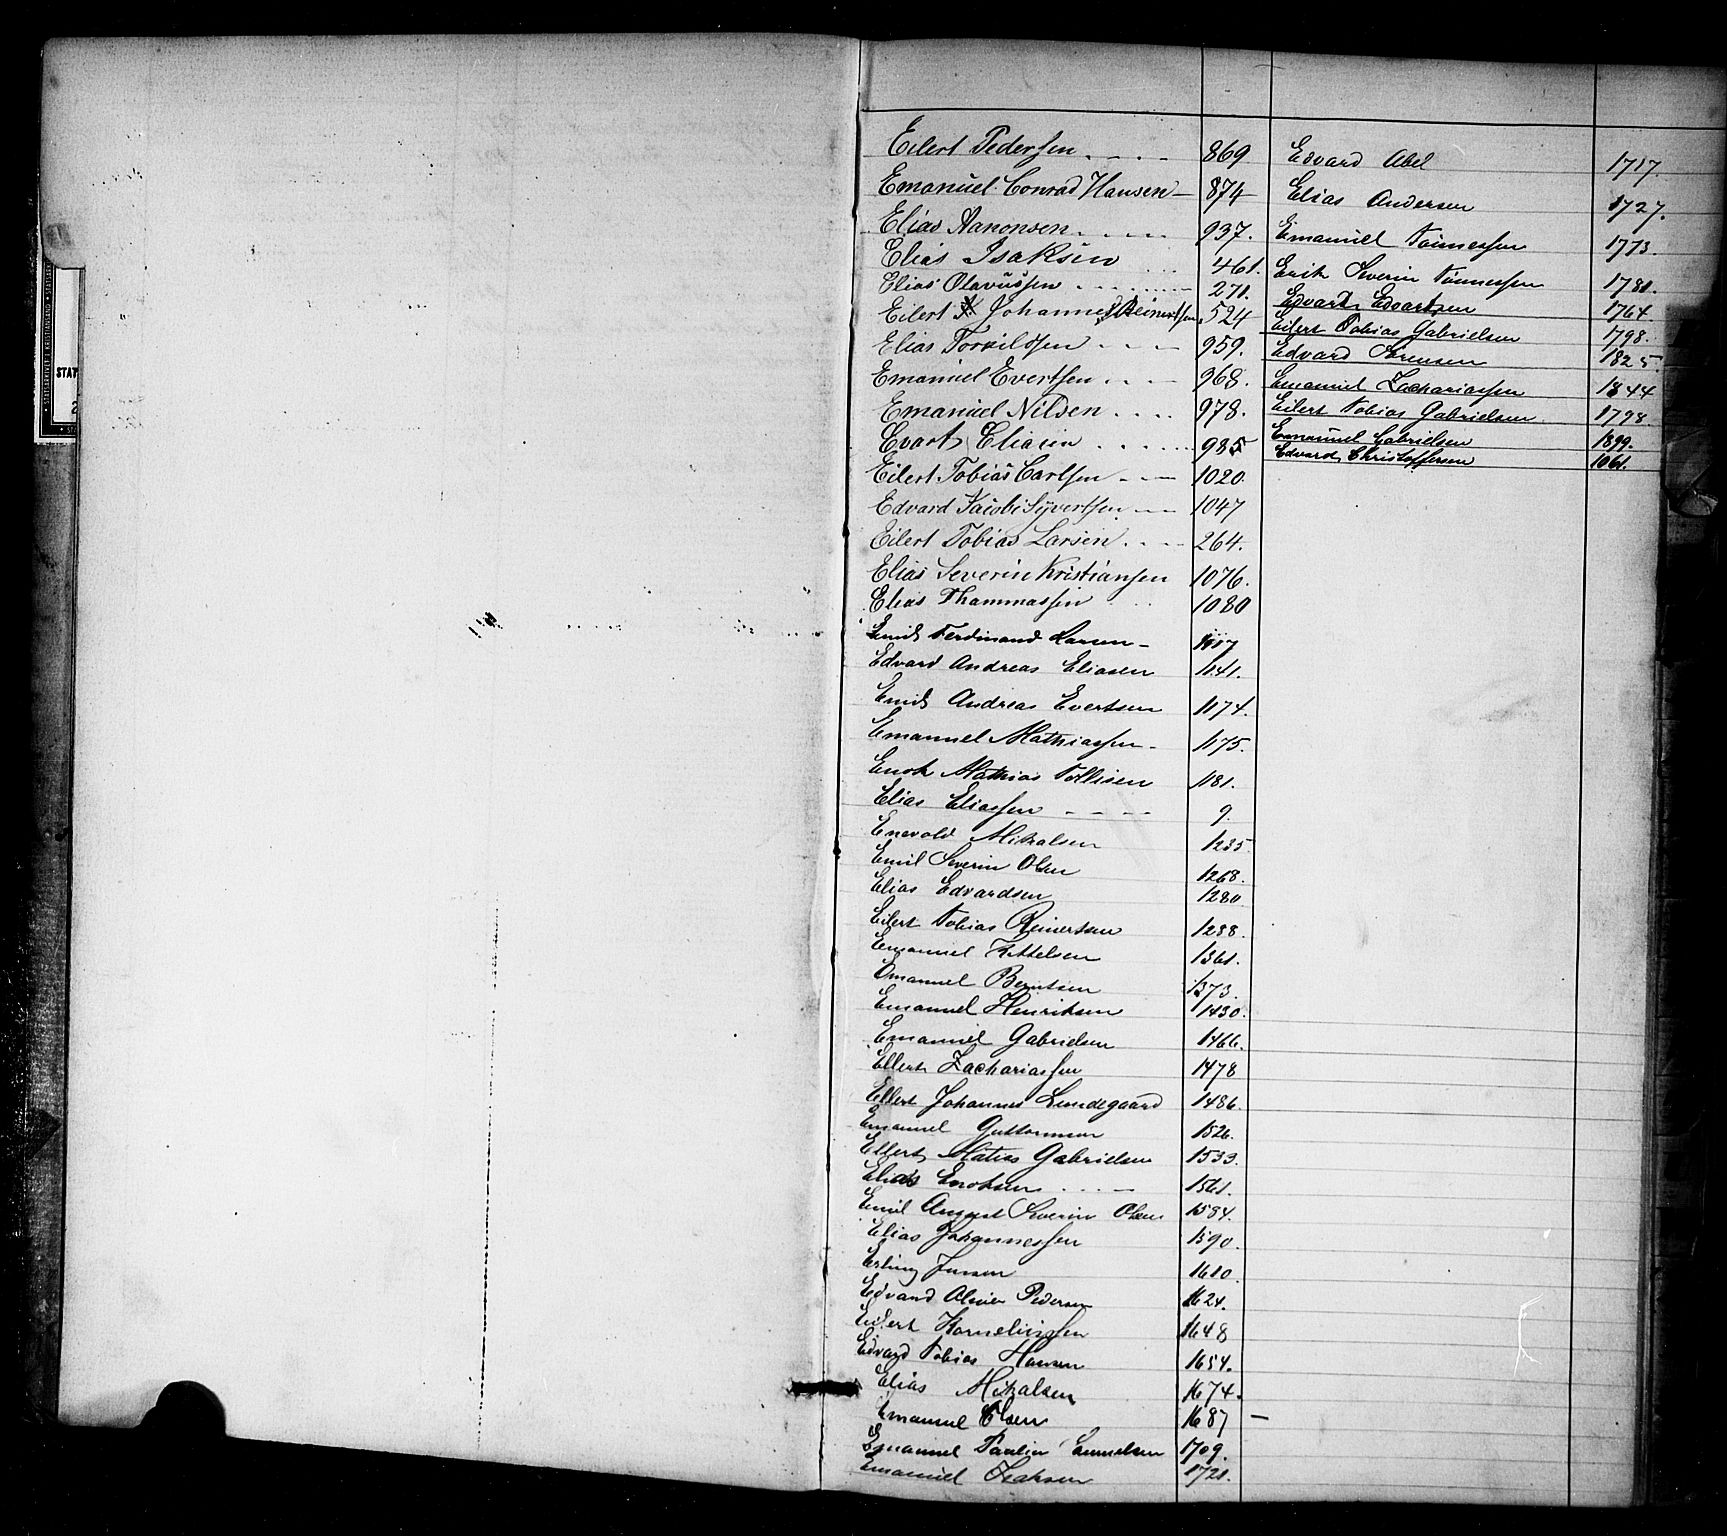 Eilert Pedersen . - - - 869
Emanuel Conrad Hansen - 874
Elias Aanonsen . - - - - 937.
Elias Isaksen . . . 461.
Elias Olavussen - - - - - - - 271.
Eilert Johannes Reinertsen 524
Elias Torkildsen - - - - 959.
Emanuel Evertsen . . . - 968.
Emanuel Nilsen . . . . 978.
Evart Eliasen . . . . . . 985
Eilert Tobias Carlsen - - - 1020.
Edvard Jacob Syvertsen - - 1047
Eilert Tobias Larsen . . . - 264.
Elias Severin Kristiansen 1076.
Elias Thammassen . . 1080
Emil Ferdinand Larsen - 1107
Edvard Andreas Eliasen 1141.
Emil Andreas Evertsen 1174.
Emanuel Mathiassen - 1175.
Enok Mathias Tollisen 1181.
Elias Eliassen - - - - 9.
Enevold Mikalsen 1235.
Emil Severin Olsen 1268.
Elias Edvardsen 1280
Eilert Tobias Reinertsen 1288.
Emanuel Kittelsen 1361.
Omanuel Berntsen 1373.
Emanuel Henriksen 1430.
Emanuel Gabrielsen 1466.
Ellert Zachariassen 1478
Ellert Johannes Lundegaard 1486.
Emanuel Guttormsen 1526.
Ellert Matias Gabrielsen 1533.
Elias Enoksen . . . - 1561.
Emil August Severin Olsen 1584.
Elias Johannessen 1590.
Erling Jensen 1610.
Edvard Olivier Pedersen 1624.
Eilert Korneliussen 1648
Edvard Tobias Hansen 1654.
Elias Mikalsen 1674.
Emanuel Olsen 1687 -
Emanuel Paulin Samuelsen 1709.
Emanuel Isaksen 1721.
Edvard Abel 1717.
Elias Andersen 1727.
Emanuel Tønnessen 1773.
Erik Severin Tønnessen 1781.
Edvart Edvartsen 1764
Eilert Tobias Gabrielsen 1798.
Edvard Sørensen 1825.
Emanuel Zachariassen 1844
Eilert Tobias Gabrielsen 1798.
Emanuel Gabrielsen 1899.
Edvard Christoffersen 1061.
STAT